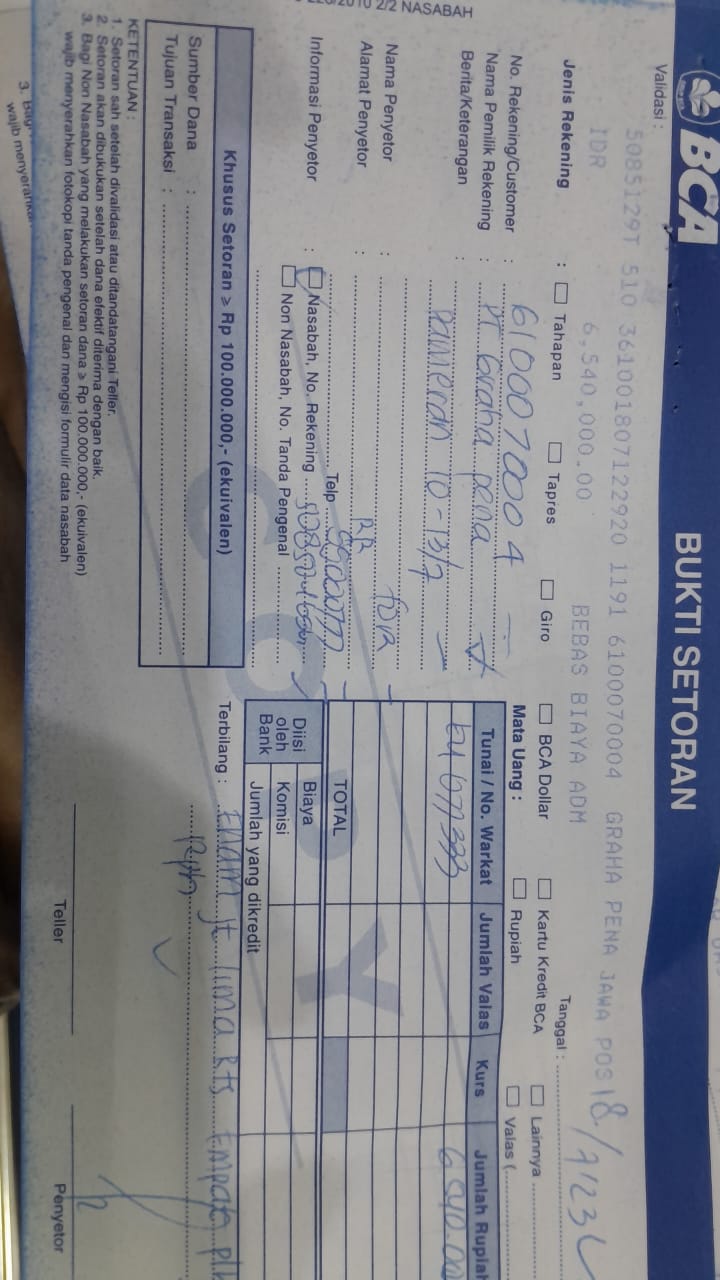 2/2 NASABAH
BCA
BUKTI SETORAN
Validasi :
5085129T 510 361001807122920 1191 6100070004 GRAHA PENA JAWA POS
IDR 6,540,000.00 BEBAS BIAYA ADM
Tanggal : 18/7/23
Jenis Rekening : Tahapan Tapres Giro BCA Dollar Kartu Kredit BCA Lainnya
Mata Uang : Rupiah Valas (
No. Rekening/Customer : 6100070004
Nama Pemilik Rekening : PT Graha pena
Berita/Keterangan : Pameran 10-13/7
Nama Penyetor :
Alamat Penyetor :
Telp
Informasi Penyetor : Nasabah, No. Rekening
Non Nasabah, No. Tanda Pengenal
Tunai / No. Warkat Jumlah Valas Kurs Jumlah Rupiah
TOTAL
Diisi oleh Bank
Biaya
Komisi
Jumlah yang dikredit
Terbilang : Enam jt lima Rts Empat plh
Rph
Khusus Setoran ≥ Rp 100.000.000,- (ekuivalen)
Sumber Dana :
Tujuan Transaksi :
KETENTUAN :
1. Setoran sah setelah divalidasi atau ditandatangani Teller.
2. Setoran akan dibukukan setelah dana efektif diterima dengan baik.
3. Bagi Non Nasabah yang melakukan setoran dana ≥ Rp 100.000.000,- (ekuivalen)
wajib menyerahkan fotokopi tanda pengenal dan mengisi formulir data nasabah
Teller
Penyetor
COPY
3. Bagi
wajib menyerahkan